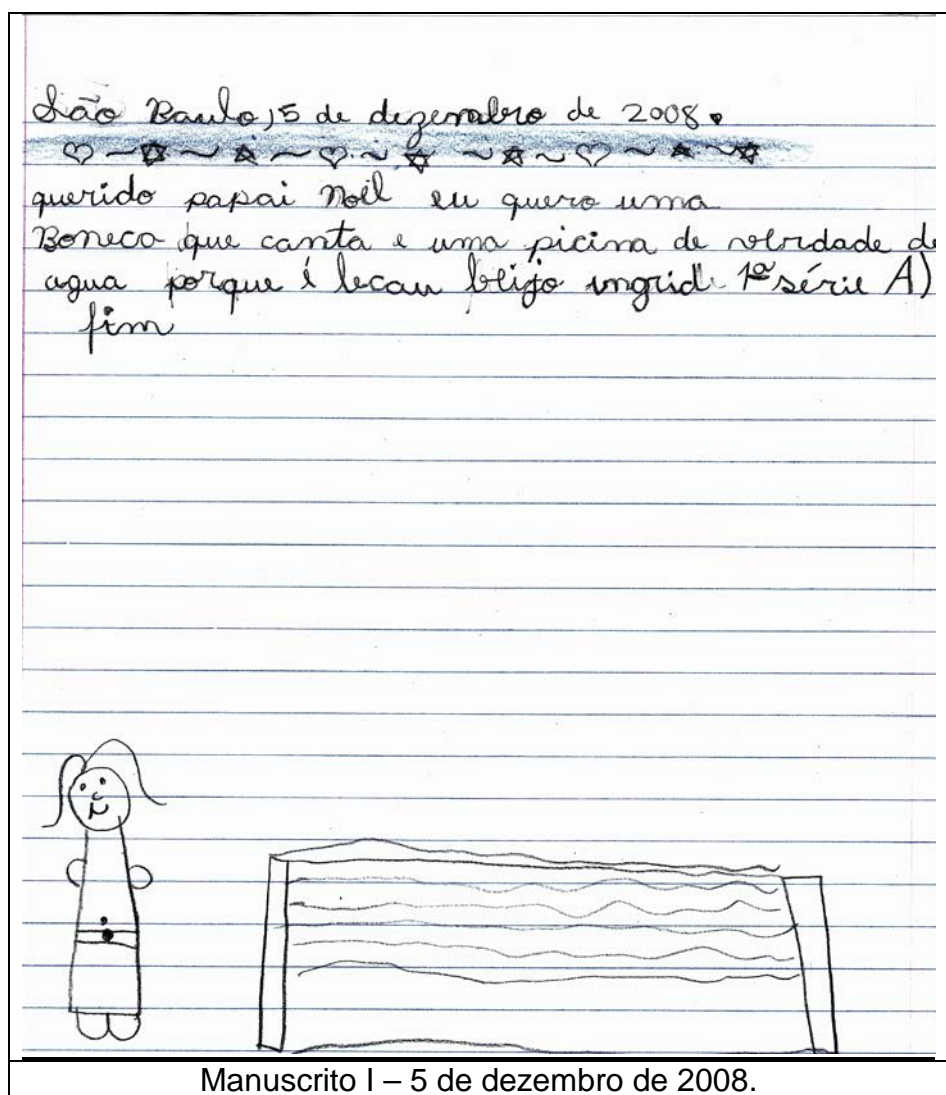 São Paulo, 5 de dezembro de 2008.
querido papai Noel eu quero uma
Boneca que canta e uma picina de verdade de
agua porque é lecau beijo ingrid 1ª série A)
fim
Manuscrito I – 5 de dezembro de 2008.